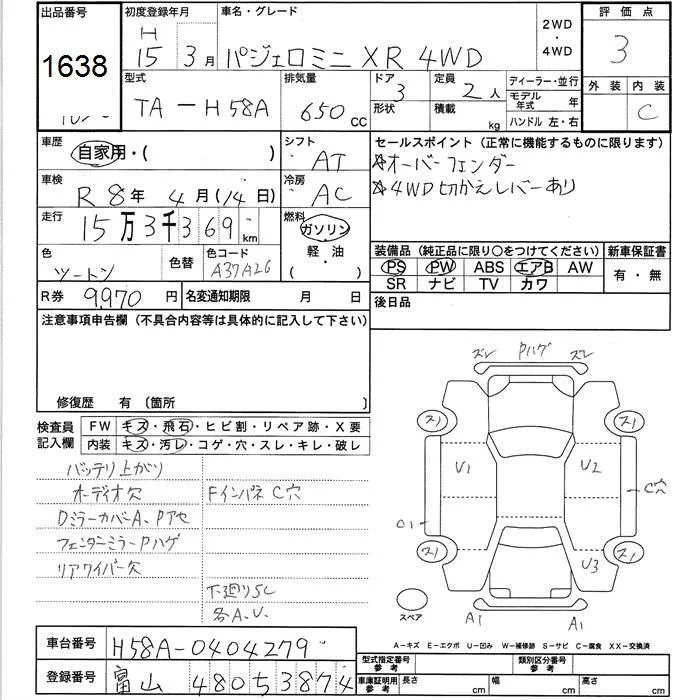 出品番号 初度登録年月 車名・グレード 2WD ・ 4WD 評価点
1638 H 15年 3月 パジェロミニ XR 4WD 3
型式 排気量 ドア 定員 ディーラー・並行 外装 内装
TA-H58A 650 CC 3 2人 モデル年式 年 C
形状 積載 kg ハンドル 左・右
車歴 自家用・( ) シフト AT セールスポイント（正常に機能するものに限ります）
☆オーバーフェンダー
車検 R8年 4月(14日) 冷房 AC ☆4WD切かえレバーあり
走行 15万3千369km 燃料 ガソリン 軽・油 ( )
色 ツートン 色替 色コード A37A26
装備品（純正品に限り○をつけてください） 新車保証書
PS PW ABS エアB AW 有・無
SR ナビ TV カワ
R券 9970円 名変通知期限 月 日 後日品
注意事項申告欄（不具合内容等は具体的に記入して下さい）
修復歴 有 〔箇所
検査員記入欄 FW キズ・飛石・ヒビ割・リペア跡・X要
内装 キズ・汚レ・コゲ・穴・スレ・キレ・破レ
バッテリ上がり
オーディオ欠 Fインパネ C穴
Dミラーカバー A、Pアセ
フェンダーミラー Pハゲ
リアワイパー欠
下廻りSC
各A.U.
ズレ Pハゲ ズレ
スリ スリ
U1 U2
C穴
スリ スリ
U3
スペア A1 A1
A－キズ E－エクボ U－凹み W－補修跡 S－サビ C－腐食 XX－交換済
車台番号 H58A-0404279
登録番号 富山 480 5 3874
型式指定番号 参考 類別区分番号 参考
車庫証明用 参考 長さ cm 幅 cm 高さ cm